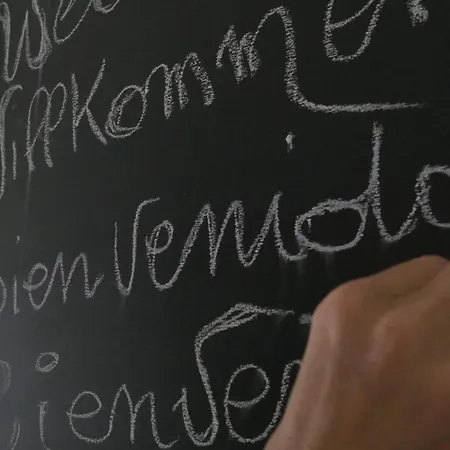 Willkommen
Bienvenido
Bienve